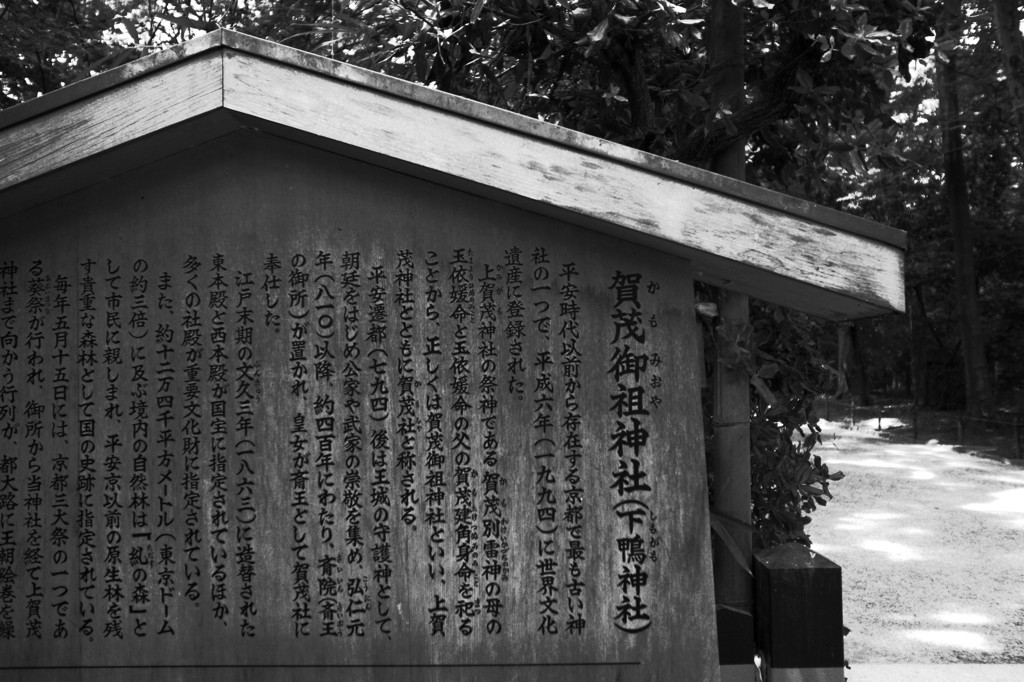 賀茂御祖神社(下鴨神社)
平安時代以前から存在する京都で最も古い神
社の一つで、平成六年(一九九四)に世界文化
遺産に登録された。
上賀茂神社の祭神である賀茂別雷神の母の
玉依媛命と玉依媛命の父の賀茂建角身命を祀る
ことから、正しくは賀茂御祖神社といい、上賀
茂神社とともに賀茂社と称される。
平安遷都(七九四)後は王城の守護神として、
朝廷をはじめ公家や武家の崇敬を集め、弘仁元
年(八一〇)以降、約四百年にわたり、斉院(斎王
の御所)が置かれ、皇女が斎王として賀茂社に
奉仕した。
江戸末期の文久三年(一八六三)に造替された
東本殿と西本殿が国宝に指定されているほか、
多くの社殿が重要文化財に指定されている。
また、約十二万四千平方メートル(東京ドーム
の約三倍)に及ぶ境内の自然林は「糺の森」と
して市民に親しまれ、平安京以前の原生林を残
す貴重な森林として国の史跡に指定されている。
毎年五月十五日には、京都三大祭の一つであ
る葵祭が行われ、御所から当神社を経て上賀茂
神社まで向かう行列が、都大路に王朝絵巻を繰